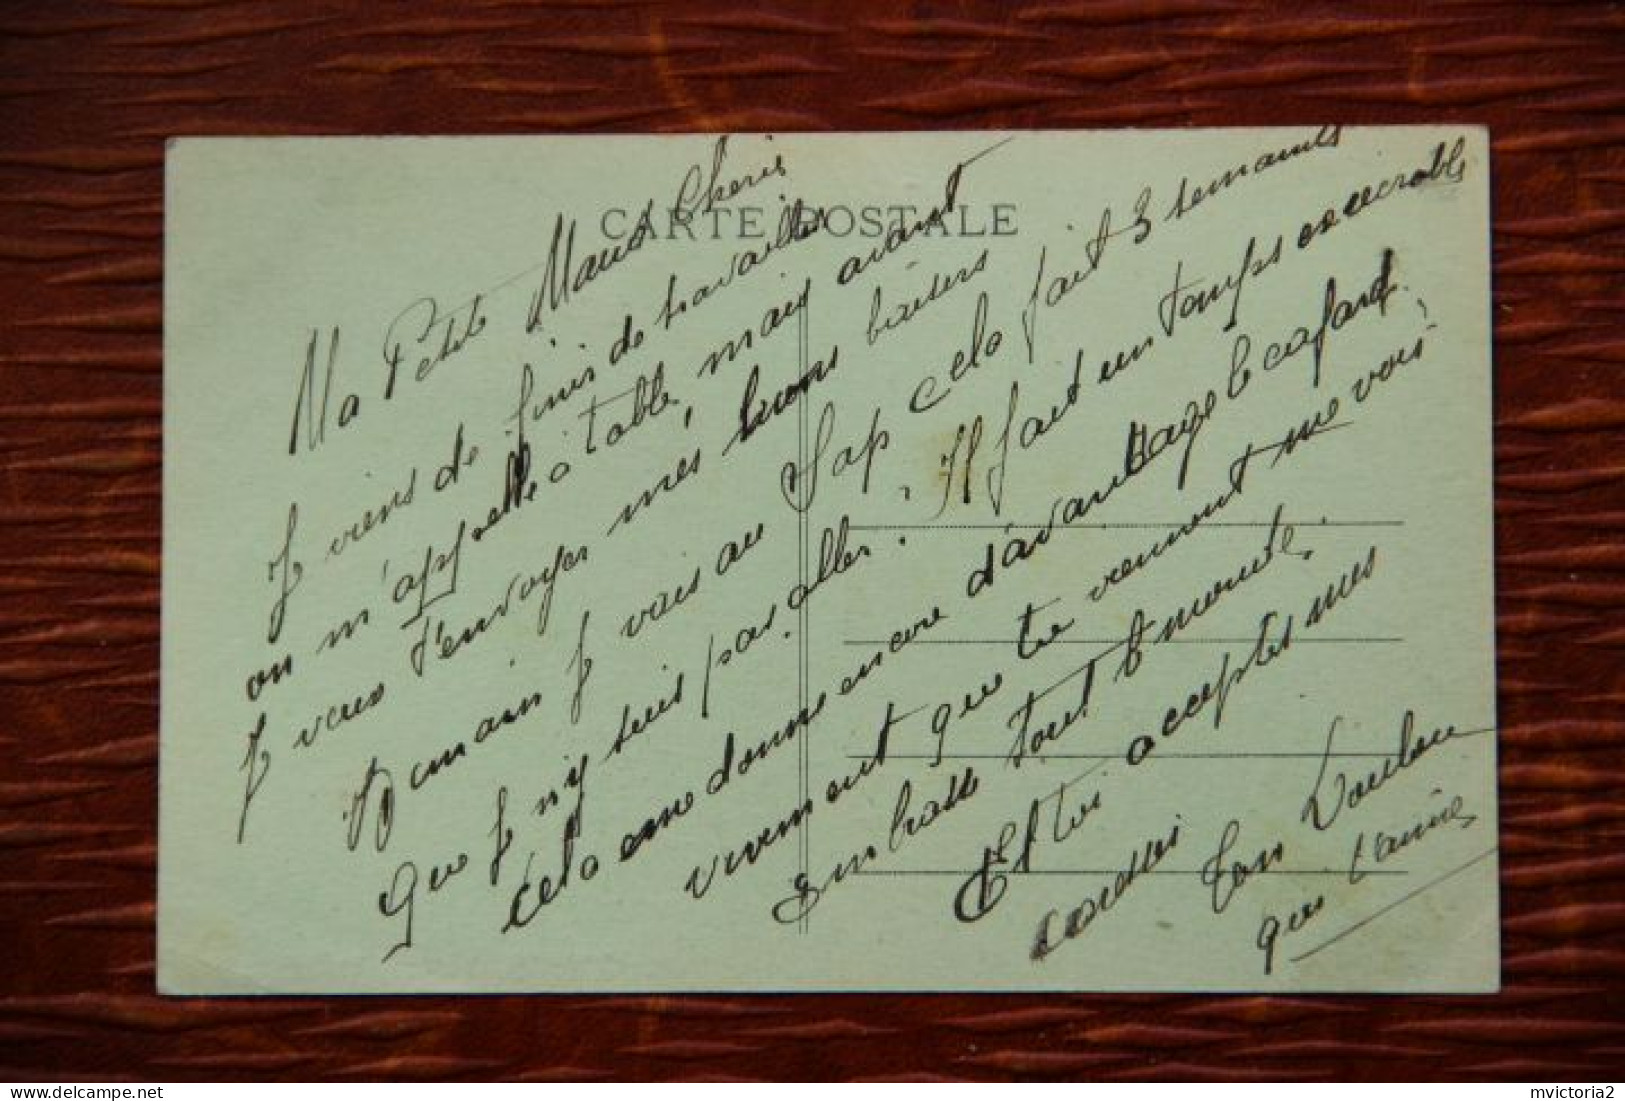 CARTE POSTALE
Ma Petite Maud Cherie
Je viens de finir de travailler
on m'appelle a table, mais avant
Je veux t'envoyer mes bons baisers
Demain Je vais au Sap cela fait 3 semaines
que Je n'y suis pas aller. Il fait un temps execrable
cela me donne encore d'avantage le cafard,
vivement que te viennent me voir
Embrasse tout le monde.
Et toi acceptes mes
caresses Ton Loulou
qui t'aime
mvictoria2